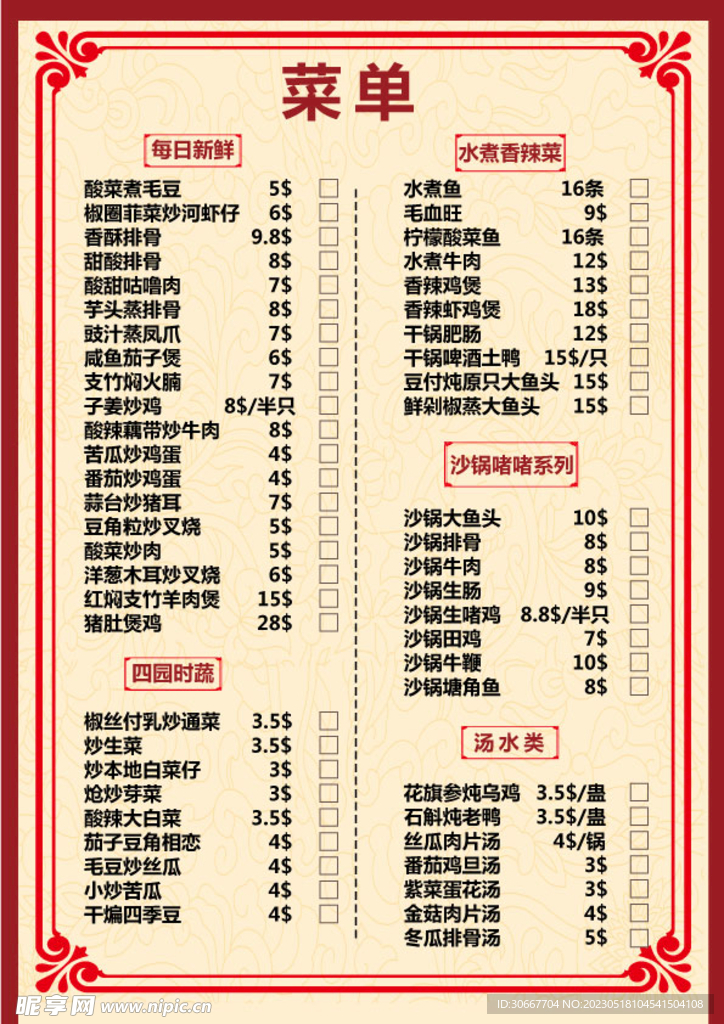 菜单
每日新鲜
酸菜煮毛豆 5$
椒圈菲菜炒河虾仔 6$
香酥排骨 9.8$
甜酸排骨 8$
酸甜咕噜肉 7$
芋头蒸排骨 8$
豉汁蒸凤爪 7$
咸鱼茄子煲 6$
支竹焖火腩 7$
子姜炒鸡 8$/半只
酸辣藕带炒牛肉 8$
苦瓜炒鸡蛋 4$
番茄炒鸡蛋 4$
蒜台炒猪耳 7$
豆角粒炒叉烧 5$
酸菜炒肉 5$
洋葱木耳炒叉烧 6$
红焖支竹羊肉煲 15$
猪肚煲鸡 28$
四园时蔬
椒丝付乳炒通菜 3.5$
炒生菜 3.5$
炒本地白菜仔 3$
炝炒芽菜 3$
酸辣大白菜 3.5$
茄子豆角相恋 4$
毛豆炒丝瓜 4$
小炒苦瓜 4$
干煸四季豆 4$
水煮香辣菜
水煮鱼 16条
毛血旺 9$
柠檬酸菜鱼 16条
水煮牛肉 12$
香辣鸡煲 13$
香辣虾鸡煲 18$
干锅肥肠 12$
干锅啤酒土鸭 15$/只
豆付炖原只大鱼头 15$
鲜剁椒蒸大鱼头 15$
沙锅啫啫系列
沙锅大鱼头 10$
沙锅排骨 8$
沙锅牛肉 8$
沙锅生肠 9$
沙锅生啫鸡 8.8$/半只
沙锅田鸡 7$
沙锅牛鞭 10$
沙锅塘角鱼 8$
汤水类
花旗参炖乌鸡 3.5$/蛊
石斛炖老鸭 3.5$/蛊
丝瓜肉片汤 4$/锅
番茄鸡旦汤 3$
紫菜蛋花汤 3$
金菇肉片汤 4$
冬瓜排骨汤 5$
昵享网 www.nipic.cn
ID:30667704 NO:20230518104541504108